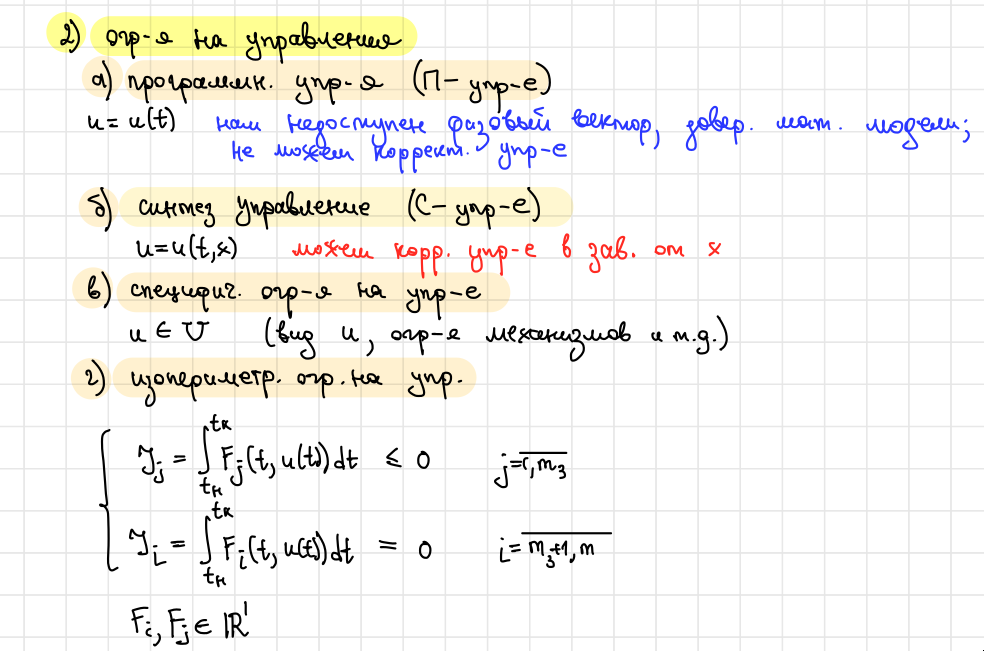 2) огр-я на управления
а) программн. упр-я (П- упр-е)
u = u(t) нам недоступен фазовый вектор, довер. мат. модели;
не можем коррект. упр-е
б) синтез управление (С- упр-е)
u=u(t,x) можем корр. упр-е в зав. от x
в) специфич. огр-я на упр-е
u ∈ U (вид u, огр-я механизмов и т.д.)
г) изопериметр. огр. на упр.
J_j = ∫_{tн}^{tк} F_j(t, u(t)) dt ≤ 0 j=1,m₃
J_i = ∫_{tн}^{tк} F_i(t, u(t)) dt = 0 i=m₃+1,m
F_i, F_j ∈ ℝ¹